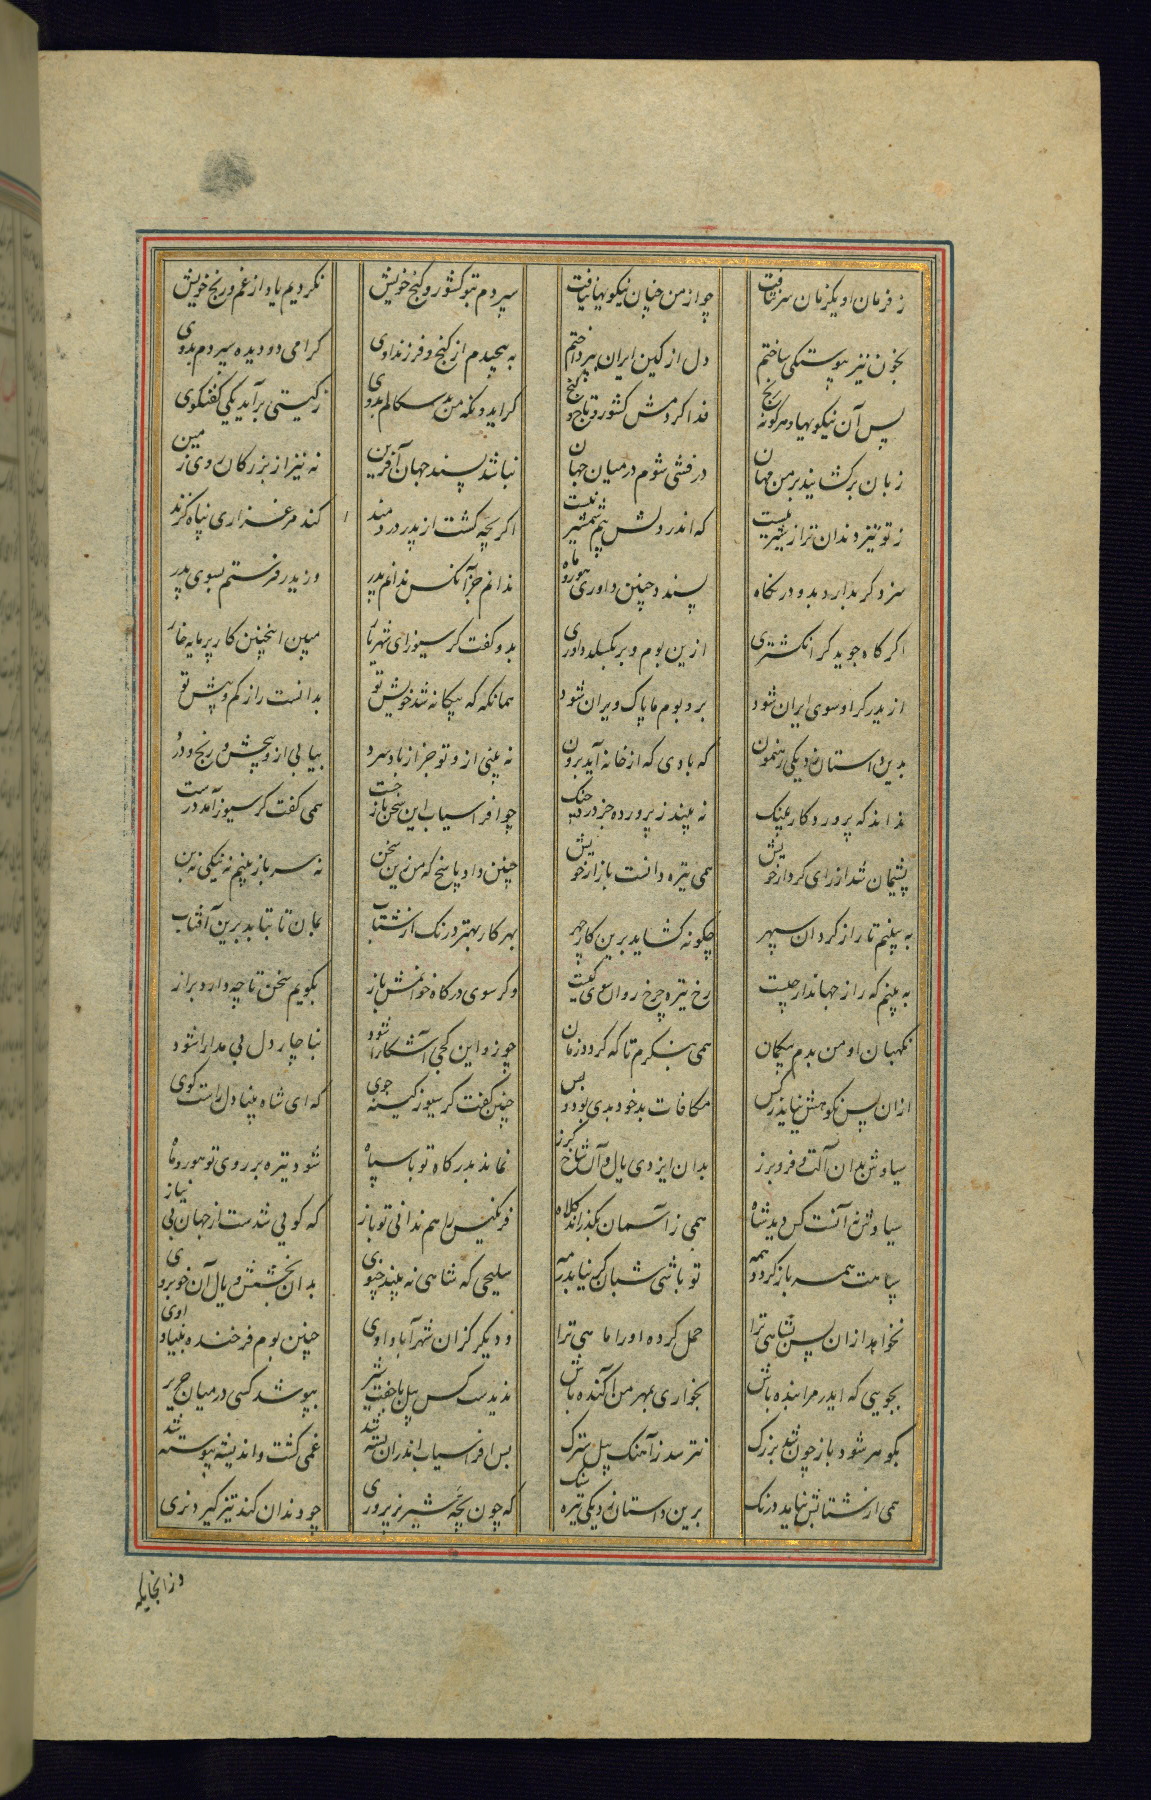 ز فرمان او یکزمان سر نتافت چو از من چنان نیکویها بیافت سپردم بتو کشور و گنج خویش نکردیم یاد از غم و رنج خویش
بخون نیز پیوستگی ساختم دل از کین ایران بپرداختم به پیچیدم از گنج و فرزند اوی گرامی دو دیده سپردم بدوی
پس آن نیکویها و هر گونه رنج فدا کردمش کشور و تاج و گنج گر ایدونکه من بد سکالم بدوی ز گیتی برآید یکی گفتگوی
زبان برگشایند بر من مهان درفشی شوم در میان جهان نباشد پسند جهان آفرین نه نیز از بزرگان روی زمین
ز تو تیز دندان تر از شیر نیست که اندر دلش بیم شمشیر نیست اگر بچه گشت از پدر دردمند کند مرغزاری پناه گزند
سزد گر بدارد بدو در نگاه پسندد چنین داوری هور و ماه ندانم جز آنکس ندانم پدر وزیدر فرستم بسوی پدر
اگر گاه جوید گر انگشتری ازین بوم و بر بگسلد داوری بدو گفت گرسیوز ای شهریار مبین اینچنین کار پرمایه خوار
از یدر گر او سوی ایران شود بر و بوم ما پاک ویران شود همانگه که بیگانه شد خویش تو بدانست راز کم و بیش تو
بدین داستان زد یکی رهنمون که بادی که از خانه آید برون نه بینی ازو تو جز از باد سرد بیابی ازو پیچش و رنج و درد
نداند که پروردگار پلنگ نه بیند ز پرورده جز درد جنگ چو افراسیاب این سخن باز جست همی گفت گرسیوز آمد درست
پشیمان شد از رای و کردار خویش همی تیره دانست بازار خویش چنین داد پاسخ که من زین سخن نه سر باز بینم نه نیکی نه بن
به بینم تا راز گردان سپهر چگونه گشاید برین کار چهر بهر کار بهتر درنگ از شتاب بمان تا بتابد برین آفتاب
به بینم که راز جهاندار چیست رخ تیره چرخ روان سوی کیست وگر سوی درگاه خوانمش باز بگویم سخن تا چه دارد براز
نگهبان او من بدم بیگمان همی بنگرم تا که گردد زمان چو زو این کجی آشکارا شود بناچار دل بی مدارا شود
از ان پس نکوهش نیاید ز کس مکافات بد خود بدی بود و بس چنین گفت گرسیوز کینه جوی که ای شاه بینادل راست گوی
سیاوش بدان آلت و فر و برز بدان ایزدی یال و آن شاخ گرز نماند بدرگاه تو با سپاه شود تیره بر روی تو هور و ماه
سیاوش نه آنست کس دید شاه همی ز آسمان بگذراند کلاه فرنگیس را هم ندانی تو باز که گویی شدست از جهان بی نیاز
سپاهت همه باز گردد همه تو باشی شبان گر نیاید رمه سلیحی که شاهی نه بیند چنوی بدان بخشش و یال و آن خوبروی
نخواهد از ان پس بشاهی ترا حمل کرده او را ماهی ترا و دیگر کزان شهر آباد اوی چنین بوم فرخنده بنیاد اوی
بجویی که ایدر مرا بنده باش بخواری بمهر من آگنده باش ندیدست کس پیل با جفت شیر بپوشد کسی در میان حریر
بگوهر شود باز چون شد بزرگ نترسد ز آهنگ پیل سترگ بس افراسیاب اندران بسته شد غمی گشت و اندیشه پیوسته شد
همی از شتابش نیاید درنگ برین داستان زد یکی تیره سنگ که چون بچه شیر نر پروری چو دندان کند تیز کیفر بری
وزانجایگه